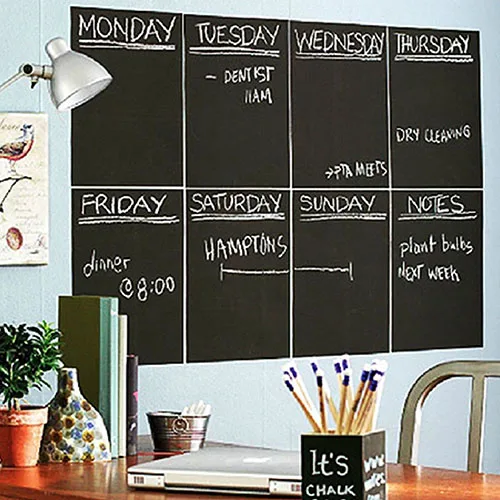 MONDAY
TUESDAY
- DENTIST
11AM
WEDNESDAY
→PTA MEETS
THURSDAY
DRY CLEANING
FRIDAY
dinner
@ 8:00
SATURDAY
HAMPTONS
SUNDAY
NOTES
plant bulbs
NEXT WEEK
It's
CHALK